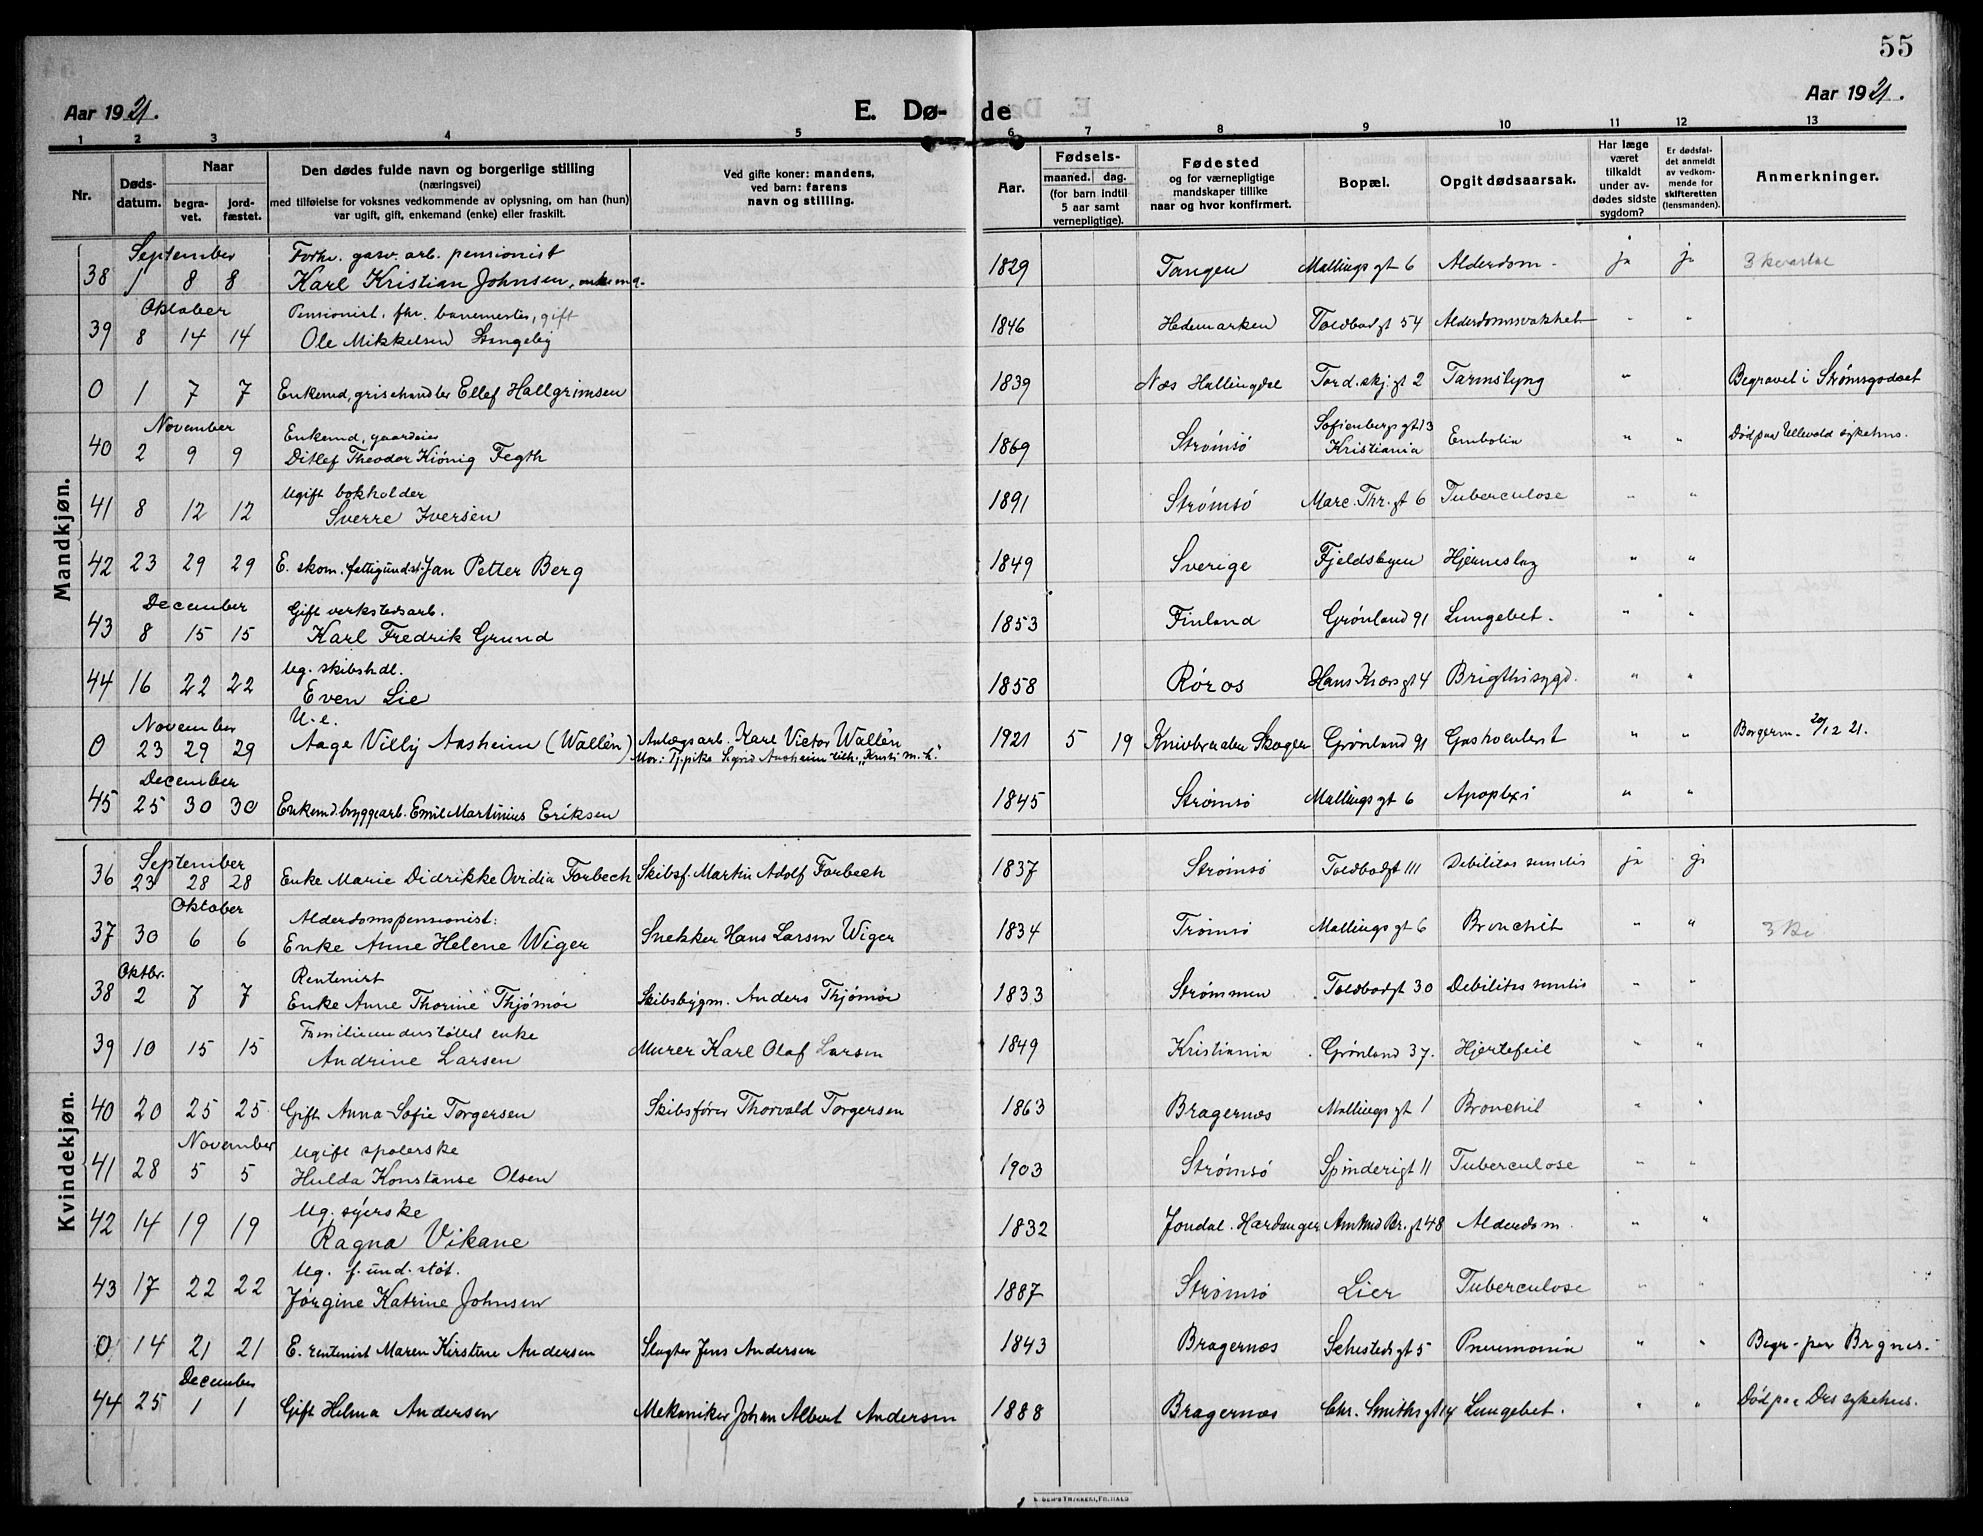 55
Aar 1921.
E. Dø-
de
Aar 1921.
1 2 3 4 5 6 7 8 9 10 11 12 13
Nr.
Døds-
datum.
Naar
begra-
vet.
jord-
fæstet.
Den dødes fulde navn og borgerlige stilling
(næringsvei)
med tilføielse for voksnes vedkommende av oplysning, om han (hun)
var ugift, gift, enkemand (enke) eller fraskilt.
Ved gifte koner: mandens,
ved barn: farens
navn og stilling.
Aar.
Fødsels-
maaned. dag.
(for barn indtil
5 aar samt
vernepligtige).
Fødested
og for værnepligtige
mandskaper tillike
naar og hvor konfirmert.
Bopæl.
Opgit dødsaarsak.
Har læge
været
tilkaldt
under av-
dødes sidste
sygdom?
Er dødsfal-
det anmeldt
av vedkom-
mende for
skifteretten
(lensmanden).
Anmerkninger.
Mandkjøn.
September Forhv. gasv. arb. pensionist
38 1 8 8 Karl Kristian Johnsen, enkemd. 1829 Tangen Mallings gt 6 Alderdom. ja ja 3 kvartal
Oktober Pensionist, fhr. banemester, gift
39 8 14 14 Ole Mikkelsen 1846 Hedemarken Toldbodgt 54 Alderdomssvakhet " "
0 1 7 7 Enkemd, grisehandler Ellef Hallgrimsen 1839 Næs Hallingdal Tord. skj. gt 2 Tarmslyng " Begravet i Strømsgodset
November Enkemd, gaardeier Sofienbergsgt 13
40 2 9 9 Ditlef Theodor Kiønig Fegth 1869 Strømsø Kristiania Embolia " " Død paa Ullevold sykehus.
Ugift bokholder
41 8 12 12 Sverre Iversen 1891 Strømsø Marc. Thr. gt 6 Tuberculose " "
42 23 29 29 E. skom. fattigundst. Jan Petter Berg 1849 Sverige Fjeldsbyen Hjerneslag " "
December Gift verkstedsarb.
43 8 15 15 Karl Fredrik Grund 1853 Finland Grønland 91 Lungebet. " "
Ug. skibshdl.
44 16 22 22 Even Lie 1858 Røros Hans Kiærs gt 4 Brigthisygd. " "
November U. e.
0 23 29 29 Aage Villy Aasheim (Wallén) Anlægsarb. Karl Victor Wallén 1921 5 19 Knivbrænden Skoger Grønland 91 " " Borgerm. 20/12 21.
Mor: Tj.pike Sigrid Aasheim
December
45 25 30 30 Enkemd. bryggearb. Emil Martinius Eriksen 1845 Strømsø Mallings gt 6 Apoplexi " "
Kvindekjøn.
September
36 23 28 28 Enke Marie Didrikke Ovidia Forbech Skibsf. Martin Adolf Forbech 1837 Strømsø Toldbodgt 111 Debilitas senilis ja ja
Oktober Alderdomspensionist:
37 30 6 6 Enke Anne Helene Wiger Snekker Hans Larsen Wiger 1834 Tromsø Mallings gt 6 Bronchit " " 3 Kv
Oktbr. Rentenist
38 2 7 7 Enke Anne Thorine Thjømøe Skibsbygm. Anders Thjømøe 1833 Strømmen Toldbodgt 30 Debilitas senilis " "
Familieunderstøttet enke
39 10 15 15 Andrine Larsen Murer Karl Olaf Larsen 1849 Kristiania Grønland 37. Hjertefeil " "
40 20 25 25 Gift Anna Sofie Torgersen Skibsfører Thorvald Torgersen 1863 Bragernæs Mallings gt 1 Bronchit " "
November Ugift spolerske
41 28 5 5 Hulda Konstanse Olsen 1903 Strømsø Spinderigt 11 Tuberculose " "
Ug. syerske
42 14 19 19 Ragna Vikane 1832 Jondal. Hardanger Amtmd Br. gt 48 Alderdom. " "
Ug. f. und. støt.
43 17 22 22 Jørgine Katrine Johnsen 1887 Strømsø Lier Tuberculose " "
0 14 21 21 E. rentenist Maren Kirstine Andersen Slagter Jens Andersen 1843 Bragernæs Schestedsgt 5 Pneumonia " " Begr. paa Brgnes.
December
44 25 1 1 Gift Helma Andersen Mekaniker Johan Albert Andersen 1888 Bragernæs Chr. Smithsgt 14 Lungebet. " " Død paa Drs sykehus.